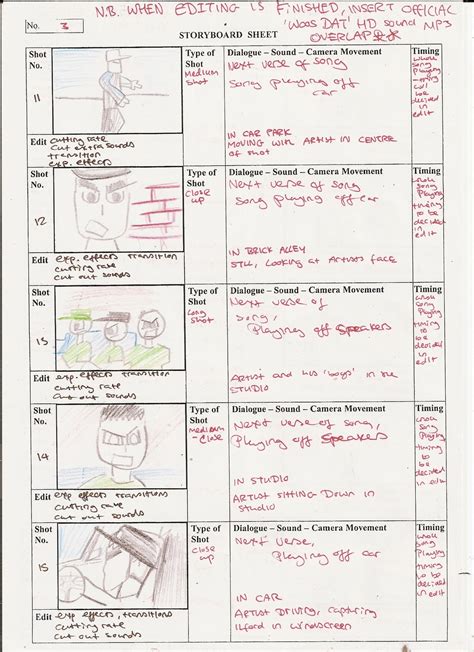 N.B. WHEN EDITING IS FINISHED, INSERT OFFICIAL
'WOOS DAT' HD sound MP3
OVERLAP
No. 3
STORYBOARD SHEET
Shot No.
Type of Shot
Dialogue – Sound – Camera Movement
Timing
11
Medium shot
Next verse of song
Song playing off
car
IN CAR PARK
MOVING WITH ARTIST IN CENTRE
of shot
whole
song
playing
timing
will
be
decided
in
edit
Edit cutting rate
cut out sounds
transition
exp. effects
Shot No.
Type of Shot
Dialogue – Sound – Camera Movement
Timing
12
close up
Next verse of song
Song playing off car
IN BRICK ALLEY
STILL, Looking at Artists face
whole
song
Playing
timing
to be
decided
in
edit
Edit exp. effects transition
cutting rate
cut out sounds
Shot No.
Type of Shot
Dialogue – Sound – Camera Movement
Timing
13
Long shot
Next verse of
song,
Playing off speakers
Artist and his 'boys' in the
STUDIO
whole
song
Playing
timing
to be
decided
in
edit
Edit exp. effects transition
cutting rate
cut out sounds
Shot No.
Type of Shot
Dialogue – Sound – Camera Movement
Timing
14
Medium – close
Next verse of song,
Playing off speakers
IN STUDIO
ARTIST SITTING DOWN in
Studio
whole
song
Playing
timing
to
be
decided
in edit
Edit exp effects transitions
cutting rate
cut out sounds
Shot No.
Type of Shot
Dialogue – Sound – Camera Movement
Timing
15
close up
Next verse,
Playing off car
IN CAR
ARTIST DRIVING, capturing
Ilford in windscreen
whole
song
Playing
timing
to be
decided
in
edit
Edit exp effects, transitions
cutting rate
cut out sounds